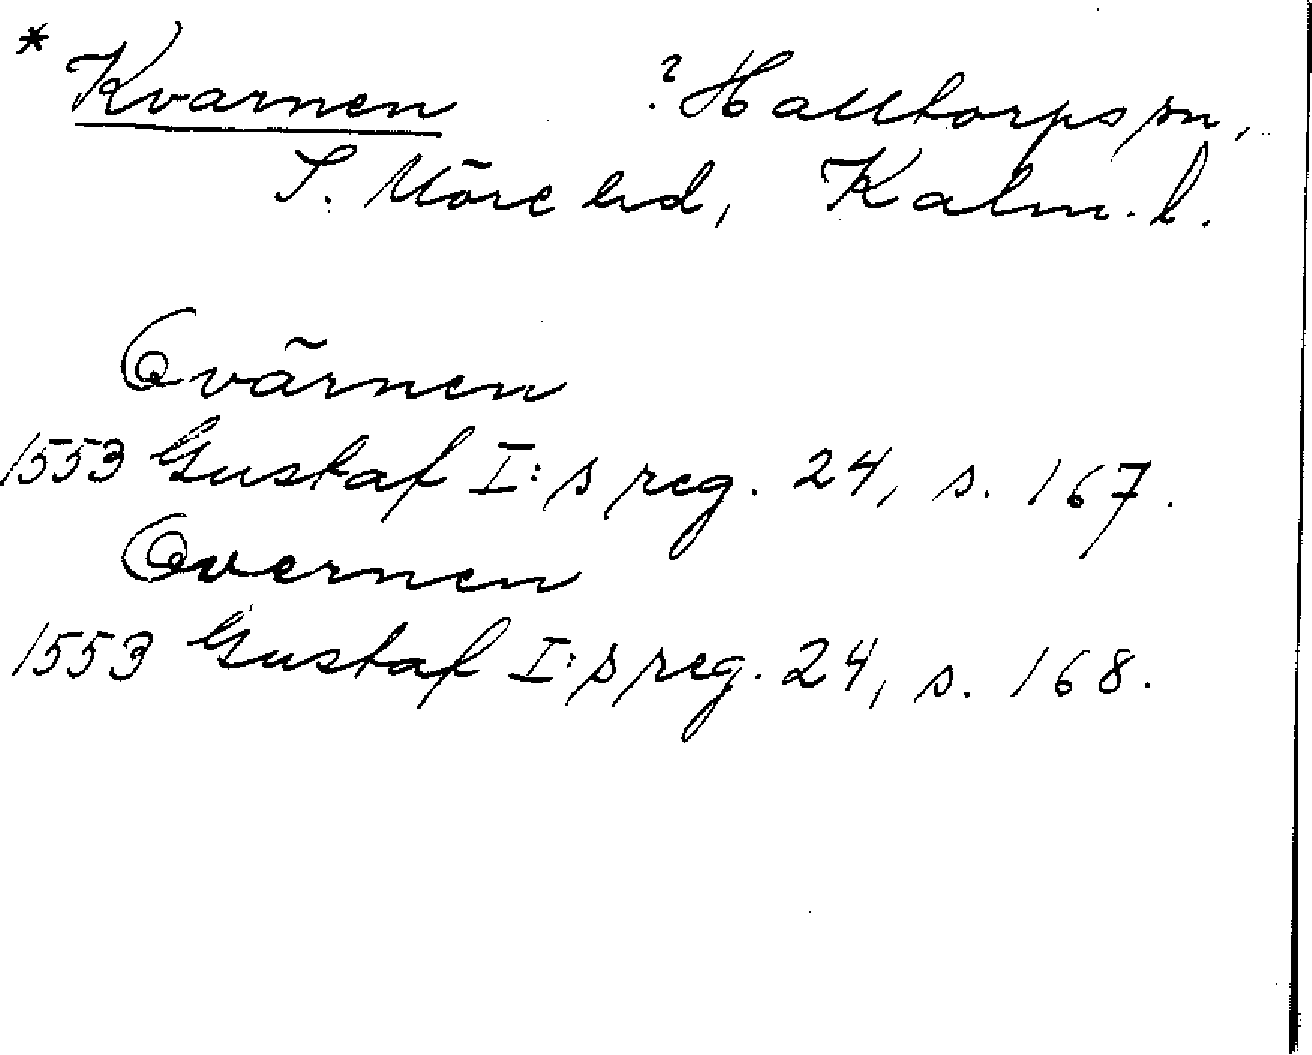 * Kvarnen ? Halltorps sn,
S. Möre hd, Kalm. l.
Qvärnen
1553 Gustaf I:s reg. 24, s. 167.
Qvernen
1553 Gustaf I:s reg. 24, s. 168.